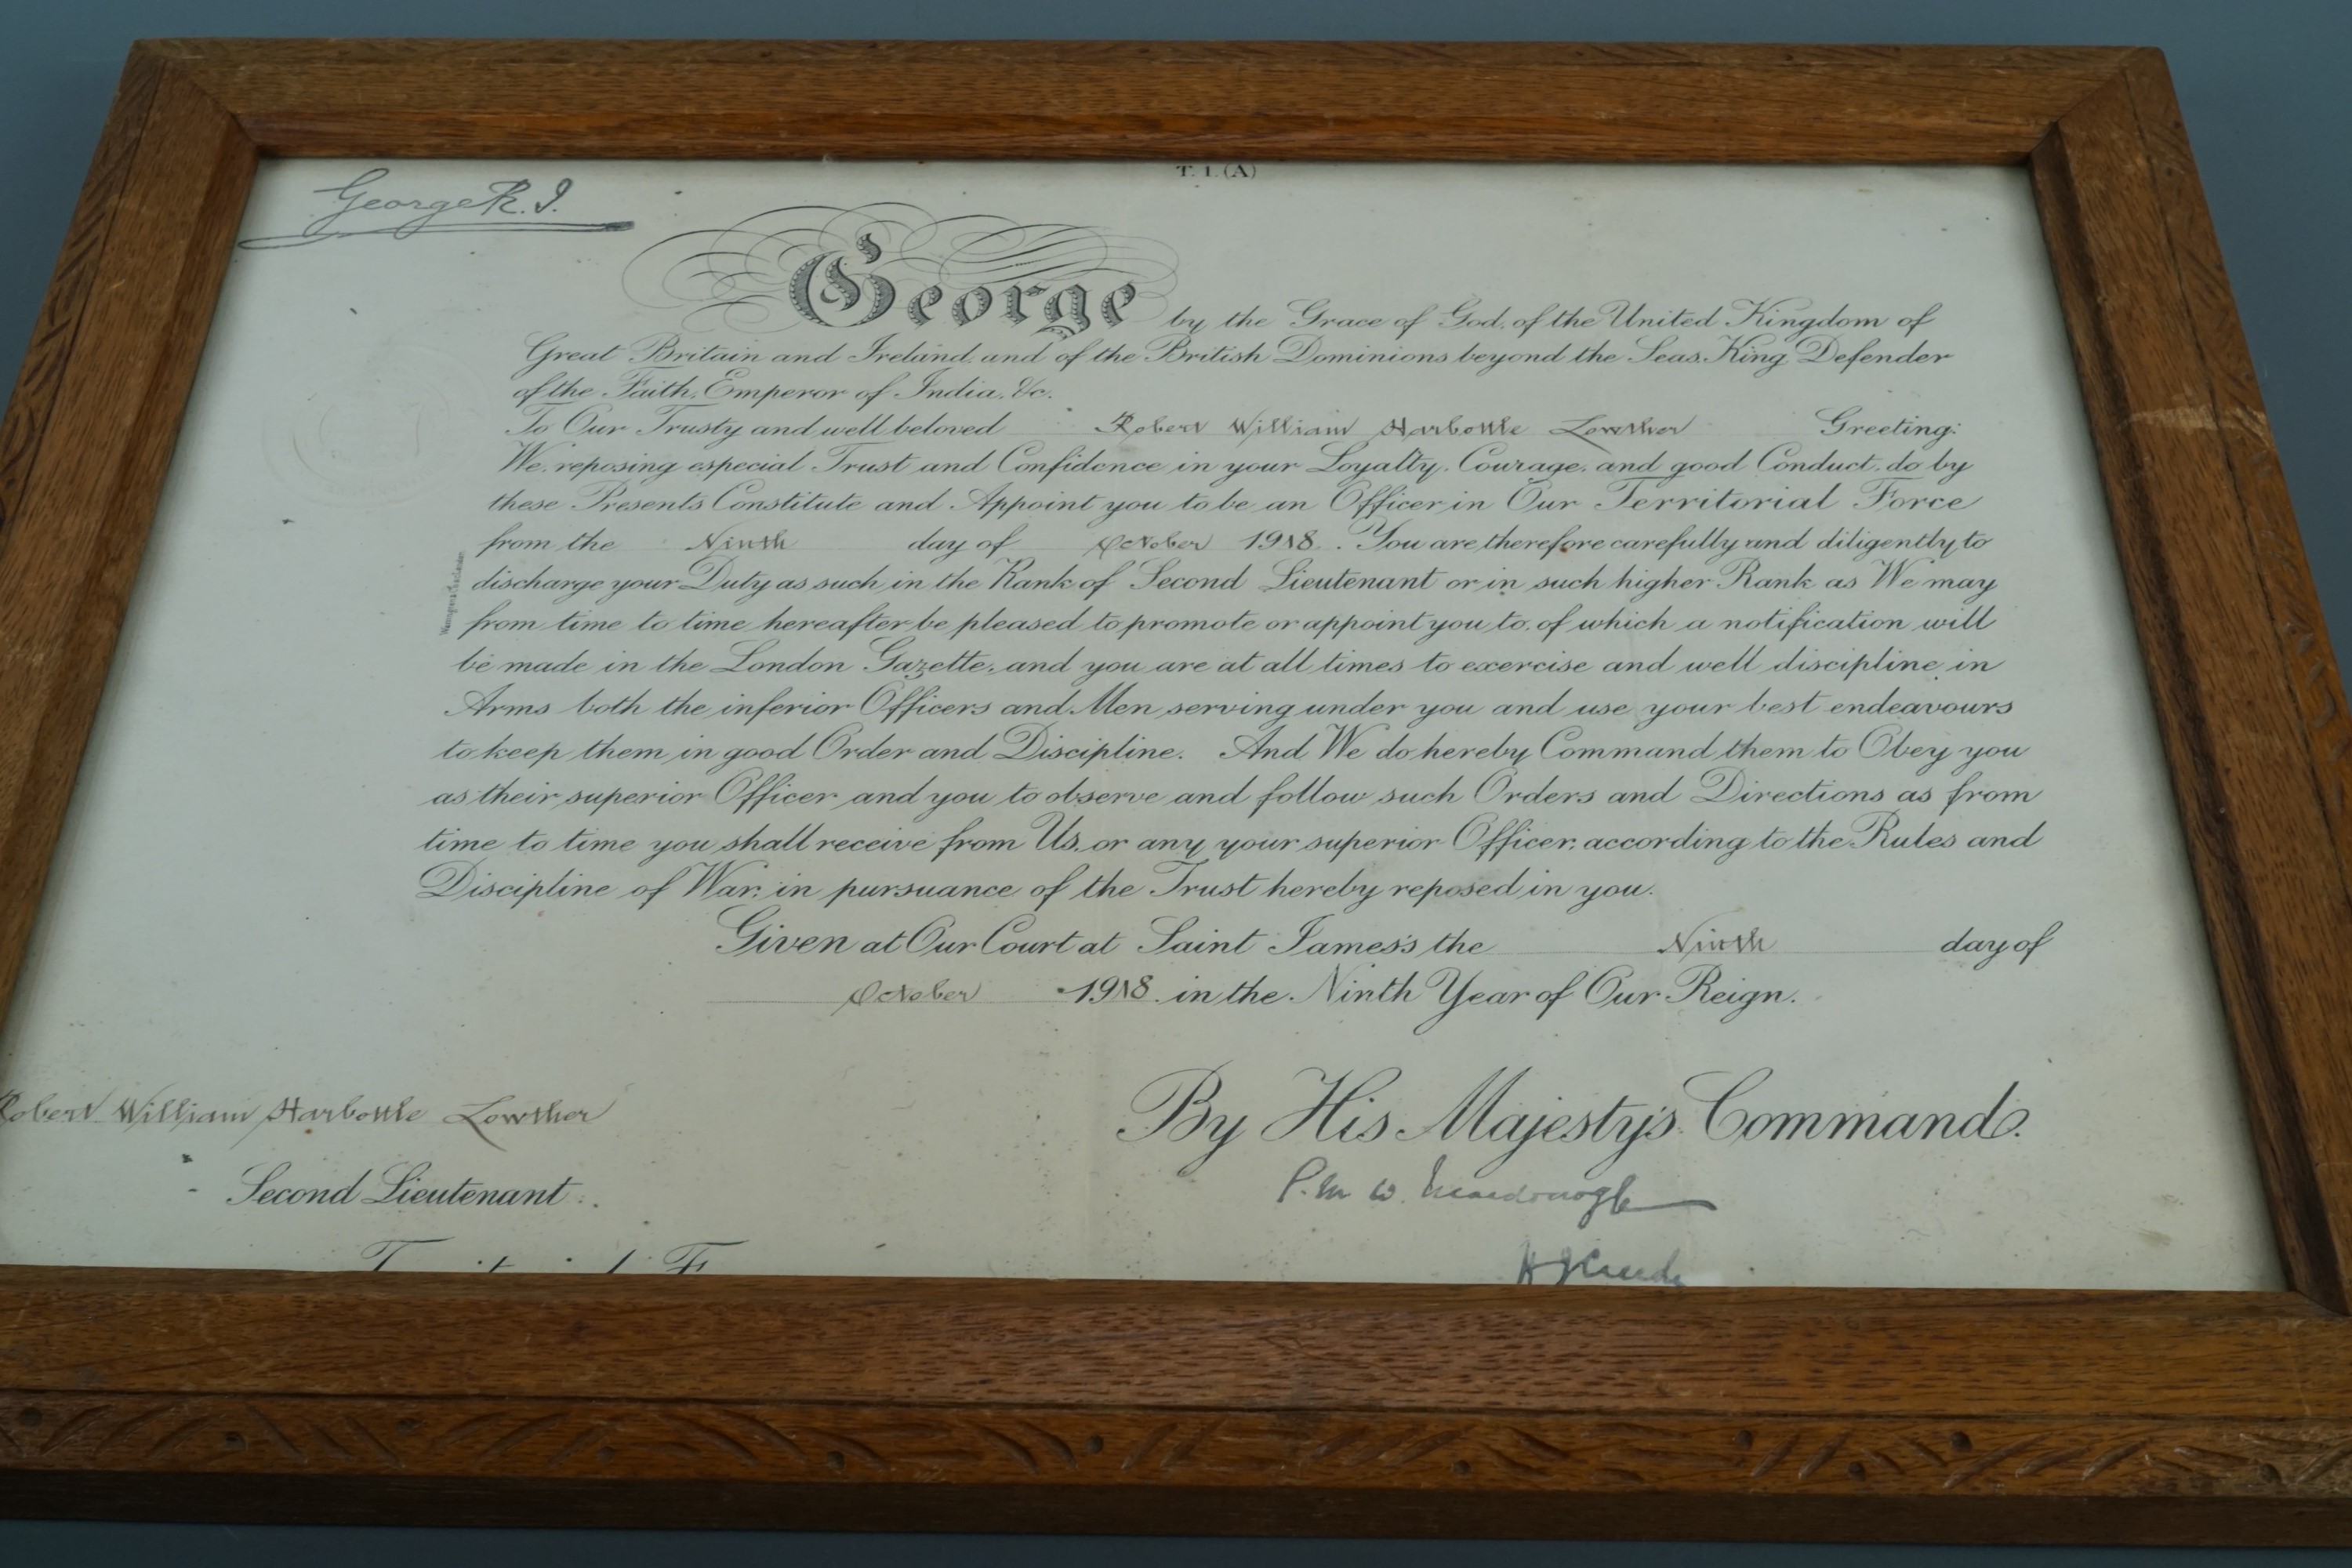 T. 1. (A)
George R.I.
George by the Grace of God, of the United Kingdom of
Great Britain and Ireland, and of the British Dominions beyond the Seas, King, Defender
of the Faith, Emperor of India, &c.
To Our Trusty and well beloved Robert William Harbottle Lowther Greeting:
We, reposing especial Trust and Confidence in your Loyalty, Courage, and good Conduct, do by
these Presents Constitute and Appoint you to be an Officer in Our Territorial Force
from the Ninth day of October 1918. You are therefore carefully and diligently to
discharge your Duty as such in the Rank of Second Lieutenant or in such higher Rank as We may
from time to time hereafter be pleased to promote or appoint you to, of which a notification will
be made in the London Gazette, and you are at all times to exercise and well discipline in
Arms both the inferior Officers and Men serving under you and use your best endeavours
to keep them in good Order and Discipline. And We do hereby Command them to Obey you
as their superior Officer and you to observe and follow such Orders and Directions as from
time to time you shall receive from Us, or any your superior Officer, according to the Rules and
Discipline of War, in pursuance of the Trust hereby reposed in you.
Given at Our Court at Saint James's the Ninth day of
October 1918. in the Ninth Year of Our Reign.
By His Majesty's Command.
Robert William Harbottle Lowther
Second Lieutenant.
P. M W. Macdonogh
H J Creedy